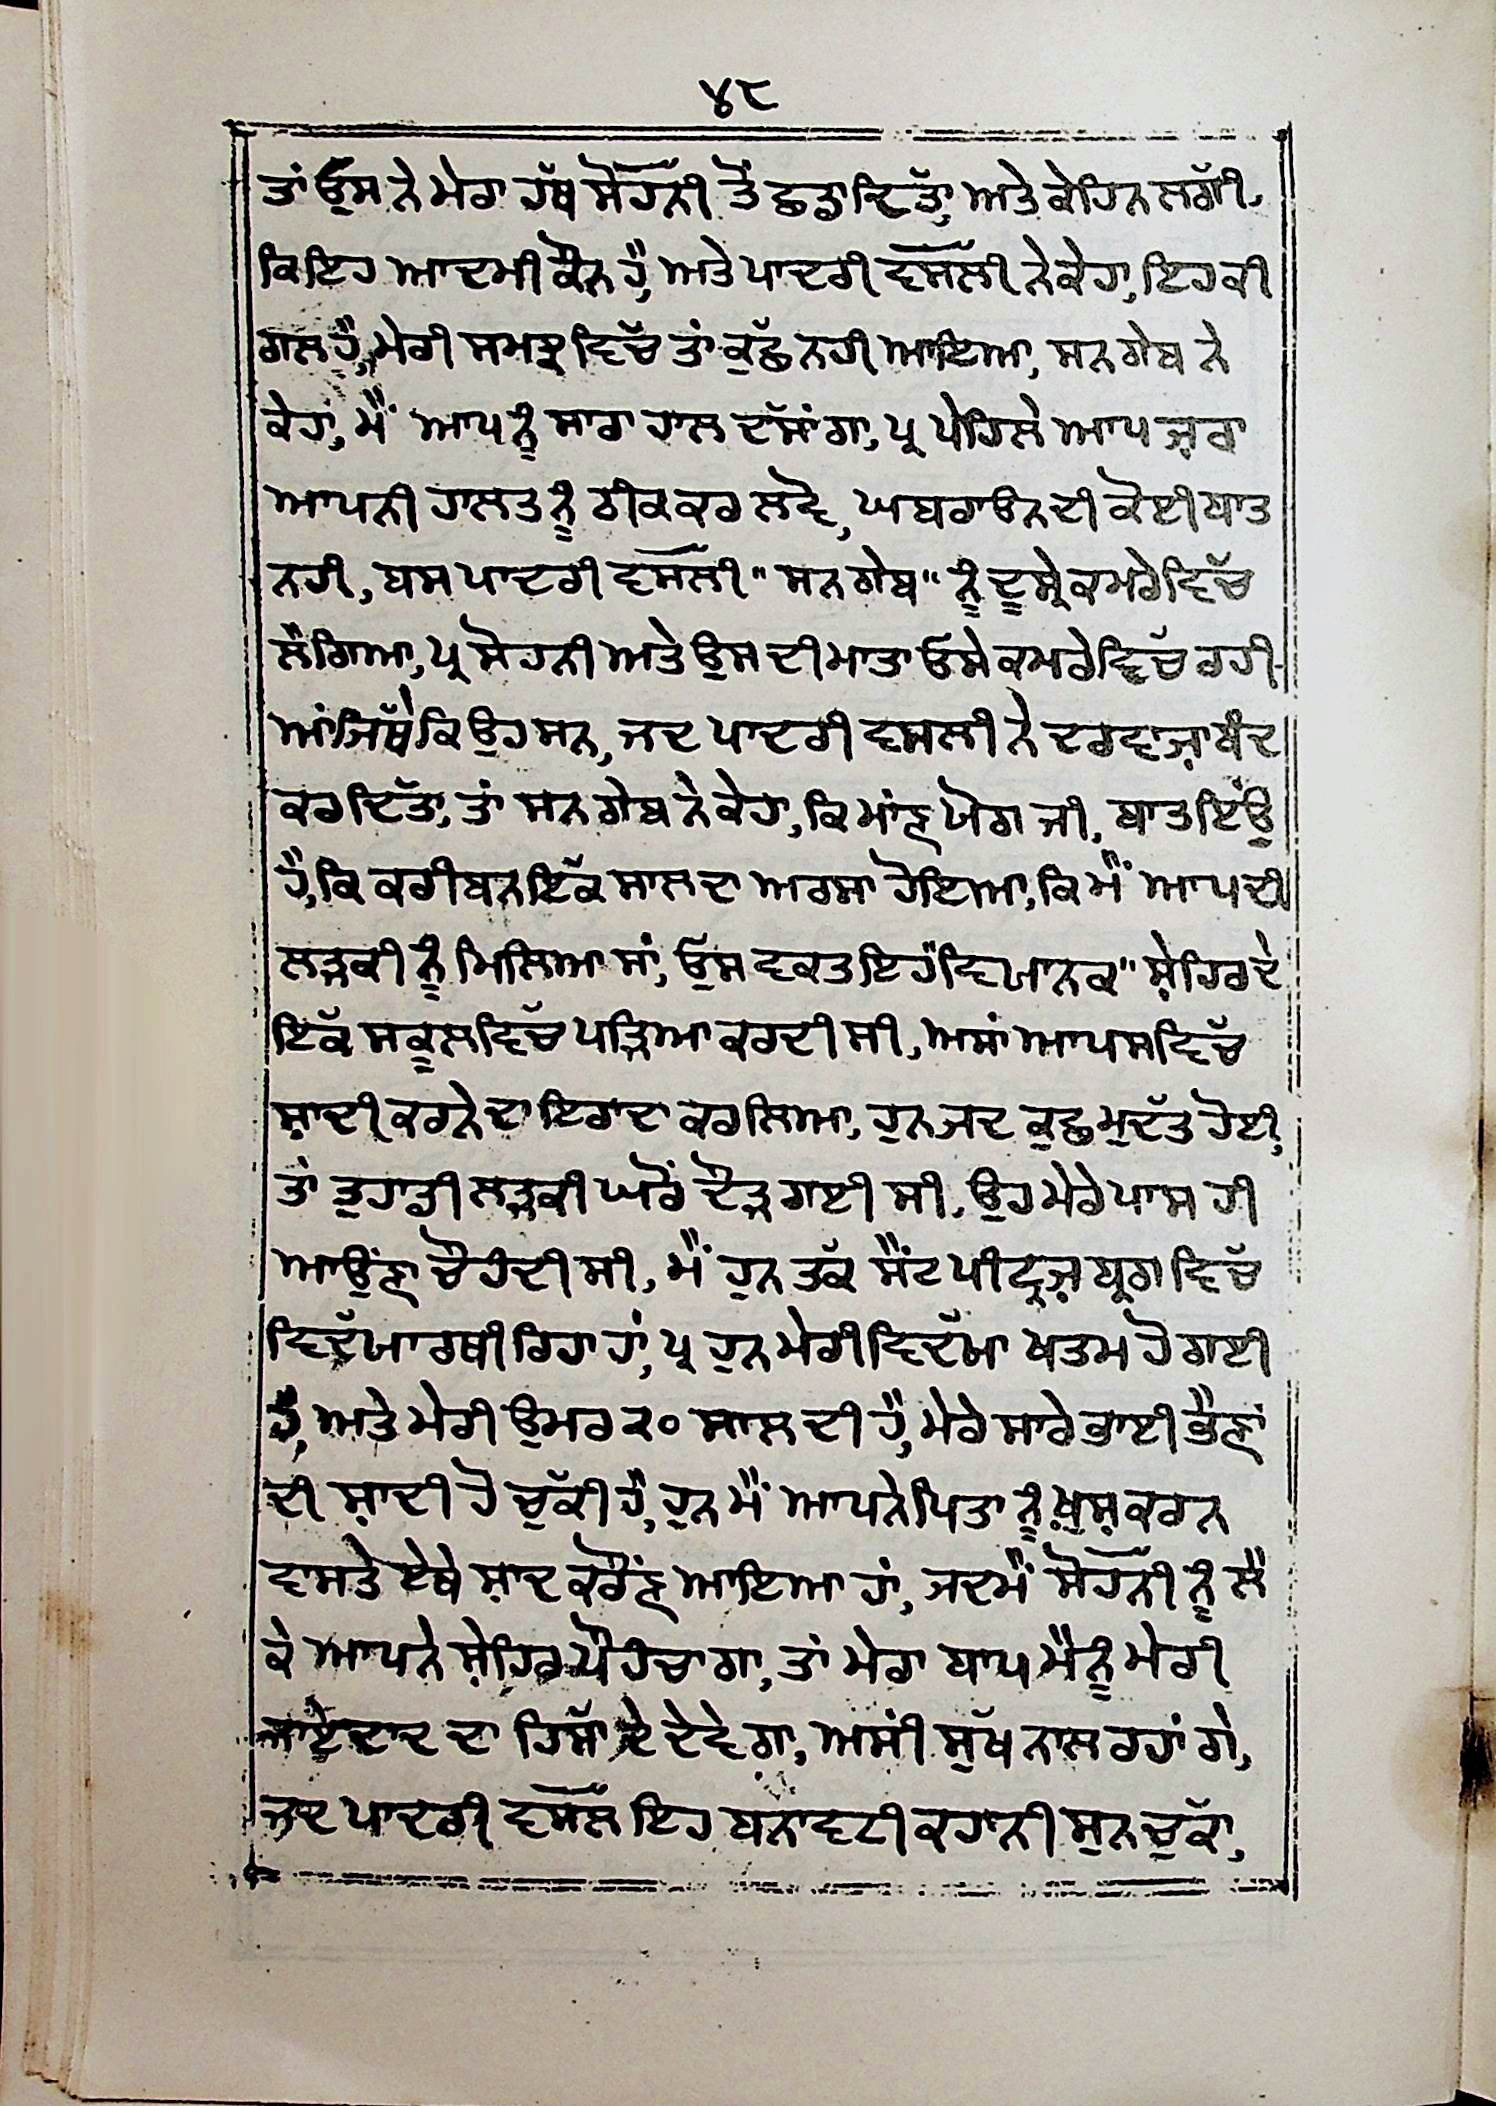 ੪੮
ਤਾਂ ਓੁਸ ਨੇ ਮੇਰਾ ਹੱਥ ਸੋਹਨੀ ਤੋਂ ਛਡਾ ਦਿੱਤਾ, ਅਤੇ ਕੇਹਿਨ ਲਗੀ,
ਕਿ ਇਹ ਆਦਮੀ ਕੌਨ ਹੈ, ਅਤੇ ਪਾਦਰੀ ਵਸਲੀ ਨੇ ਕੇਹਾ, ਇਹ ਕੀ
ਗਲ ਹੈ, ਮੇਰੀ ਸਮਝ ਵਿੱਚ ਤਾਂ ਕੁੱਛ ਨਹੀ ਆਇਆ, ਸਨ ਗੇਬ ਨੇ
ਕੇਹਾ, ਮੈਂ ਆਪ ਨੂੰ ਸਾਰਾ ਹਾਲ ਦੱਸਾਂਗਾ, ਪ੍ਰ ਪੇਹਿਲੇ ਆਪ ਜ਼ਰਾ
ਆਪਨੀ ਹਾਲਤ ਨੂੰ ਠੀਕ ਕਰ ਲਵੋ, ਘਬਰਾਓਨ ਦੀ ਕੋਈ ਬਾਤ
ਨਹੀ, ਬਸ ਪਾਦਰੀ ਵਸਲੀ "ਸਨ ਗੇਬ" ਨੂੰ ਦੂਸ੍ਰੇ ਕਮਰੇ ਵਿੱਚ
ਲੈ ਗਿਆ, ਪ੍ਰ ਸੋਹਨੀ ਅਤੇ ਉਸ ਦੀ ਮਾਤਾ ਓਸੇ ਕਮਰੇ ਵਿੱਚ ਰਹੀ
ਆਂ ਜਿੱਥੇ ਕਿ ਉਹ ਸਨ, ਜਦ ਪਾਦਰੀ ਵਸਲੀ ਨੇ ਦਰਵਾਜ਼ਾ ਬੰਦ
ਕਰ ਦਿੱਤਾ, ਤਾਂ ਸਨ ਗੇਬ ਨੇ ਕੇਹਾ, ਕਿ ਮਾਂਣ ਯੋਗ ਜੀ, ਬਾਤ ਇੰਉ
ਹੈ, ਕਿ ਕਰੀਬਨ ਇੱਕ ਸਾਲ ਦਾ ਅਰਸਾ ਹੋਇਆ, ਕਿ ਮੈਂ ਆਪ ਦੀ
ਲੜਕੀ ਨੂੰ ਮਿਲਿਆ ਸਾਂ, ਓੁਸ ਵਕਤ ਇਹ "ਵਿਯਾਨਕ" ਸ਼ੇਹਿਰ ਦੇ
ਇੱਕ ਸਕੂਲ ਵਿੱਚ ਪੜਿਆ ਕਰਦੀ ਸੀ, ਅਸਾਂ ਆਪਸ ਵਿੱਚ
ਸ਼ਾਦੀ ਕਰਨੇ ਦਾ ਇਰਾਦਾ ਕਰ ਲਿਆ, ਹੁਨ ਜਦ ਕੁਛ ਮੁਦੱਤ ਹੋਈ,
ਤਾਂ ਤੁਹਾਡੀ ਲੜਕੀ ਘਰੋਂ ਦੌੜ ਗਈ ਸੀ, ਉਹ ਮੇਰੇ ਪਾਸ ਹੀ
ਆਉਂਣਾ ਚੌਹਿੰਦੀ ਸੀ, ਮੈਂ ਹੁਨ ਤੱਕ ਸੈਂਟ ਪੀਟ੍ਰਜ਼ ਬ੍ਰਗ ਵਿੱਚ
ਵਿਦੱਯਾਰਥੀ ਰਿਹਾ ਹਾਂ, ਪ੍ਰ ਹੁਨ ਮੇਰੀ ਵਿਦੱਯਾ ਖਤਮ ਹੋ ਗਈ
ਹੈ, ਅਤੇ ਮੇਰੀ ਉਮਰ ੨੦ ਸਾਲ ਦੀ ਹੈ, ਮੇਰੇ ਸਾਰੇ ਭਾਈ ਭੈਣਾਂ
ਦੀ ਸ਼ਾਦੀ ਹੋ ਚੁੱਕੀ ਹੈ, ਹੁਨ ਮੈਂ ਆਪਨੇ ਪਿਤਾ ਨੂੰ ਖ਼ੁਸ਼ ਕਰਨ
ਵਾਸਤੇ ਏਥੇ ਸ਼ਾਦ ਕਰੌਂਣ ਆਇਆ ਹਾਂ, ਜਦ ਮੈਂ ਸੋਹਨੀ ਨੂੰ ਲੈ
ਕੇ ਆਪਨੇ ਸ਼ੇਹਿਰ ਪੌਹਿਚਾਗਾ, ਤਾਂ ਮੇਰਾ ਬਾਪ ਮੈਨੂੰ ਮੇਰੀ
ਜਾਏਦਾਦ ਦਾ ਹਿਸੱਾ ਦੇ ਦੇਵੇਗਾ, ਅਸੀਂ ਸੁੱਖ ਨਾਲ ਰਹਾਂਗੇ,
ਜਦ ਪਾਦਰੀ ਵਸਲ ਇਹ ਬਨਾਵਟੀ ਕਹਾਨੀ ਸੁਨ ਚੁਕੱਾ,